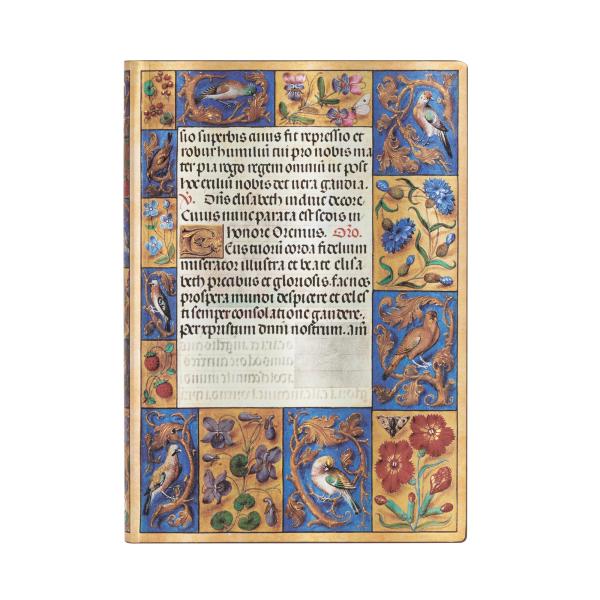 sio superbis cuius fit repressio et
robur humiliū cui pro nobis ma
ter pia rogo regem omniū ut post
hec exiliū nobis det uera gaudia.
V. Dn̄s elisabeth induit decore.
Cuius nunc parata est sedis in
honore Oremus. Oro.
Deus tuorū corda fidelium
miserator illustra et beate elisa
beth precibus et gloriosis. fac nos
prospera mundi despicere et celes
ti semper consolatione gaudere.
Per xpristum dn̄m nostrum. am̄